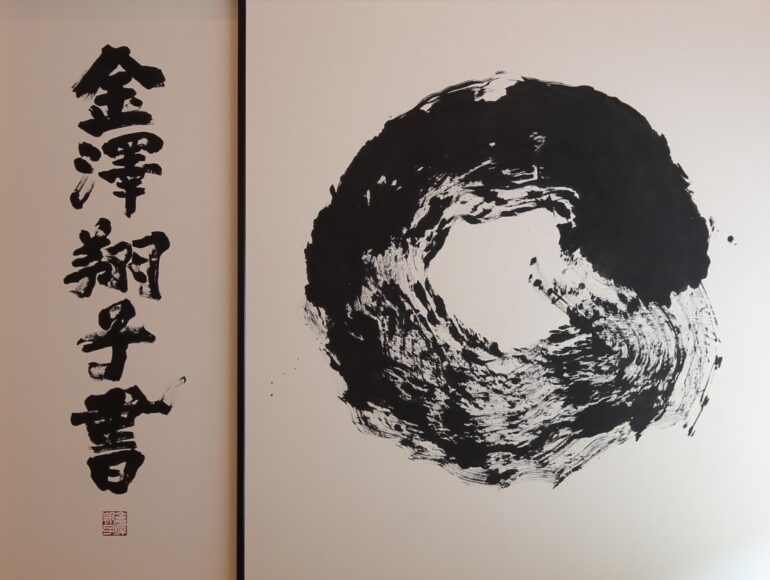 金澤翔子書